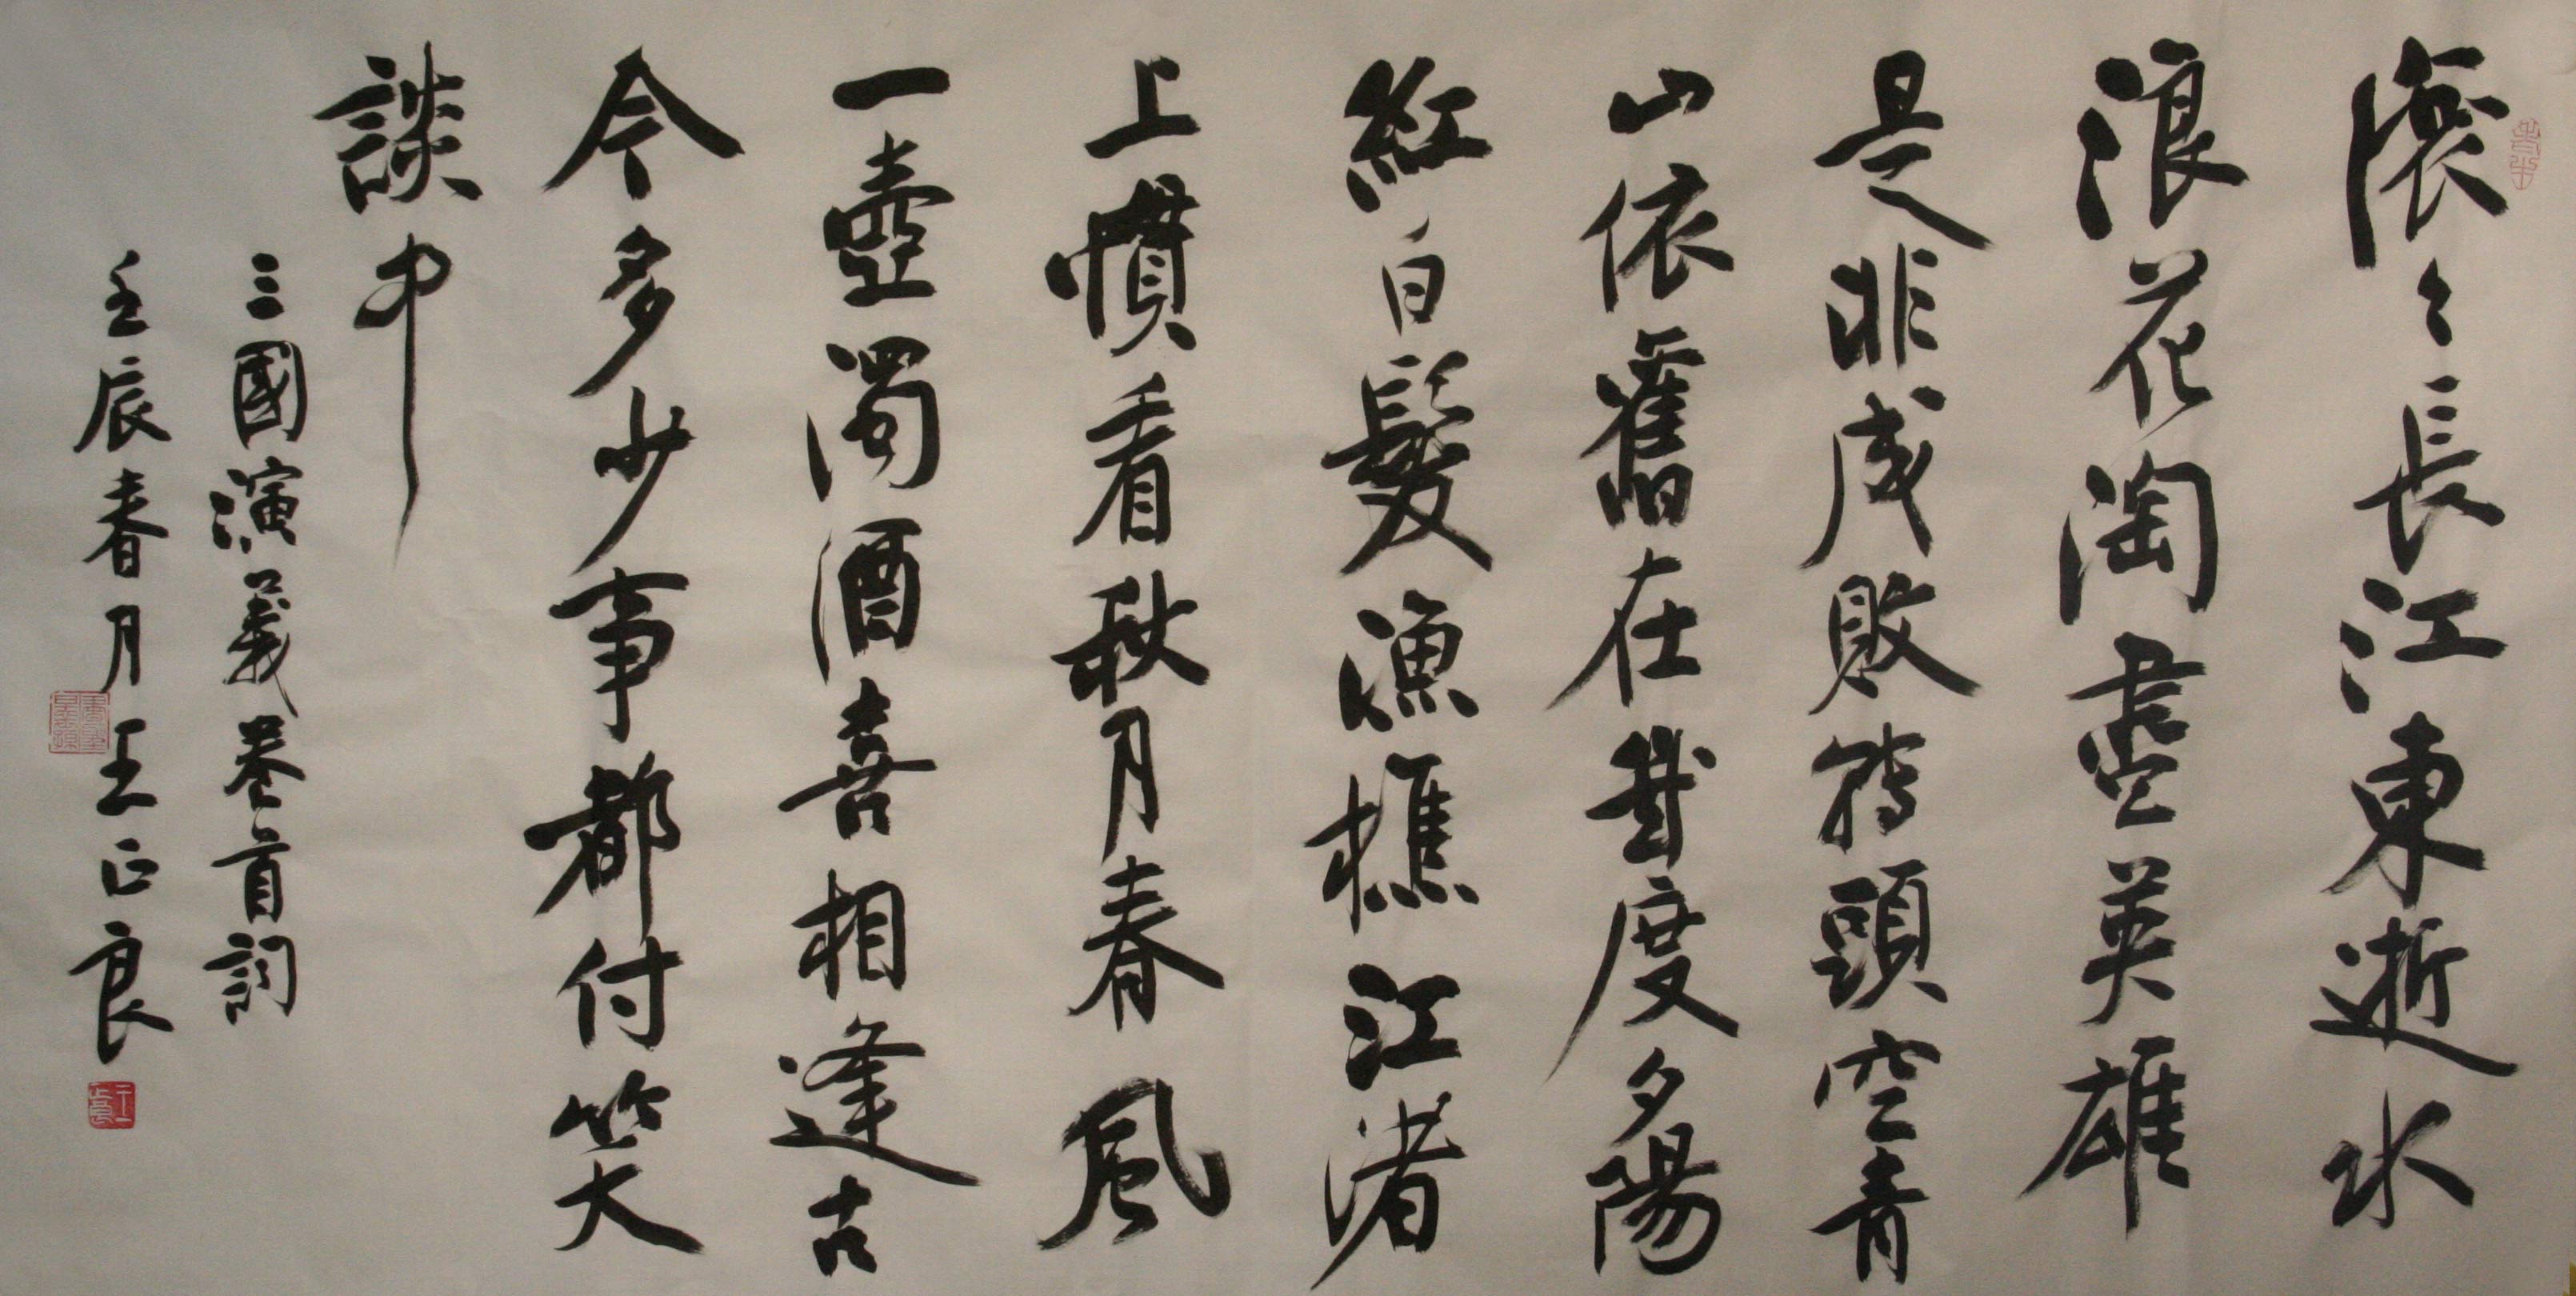 滾々長江東逝水
浪花淘盡英雄
是非成敗轉頭空青
山依舊在幾度夕陽
紅白髮漁樵江渚
上慣看秋月春風
一壺濁酒喜相逢古
今多少事都付笑
談中
三國演義卷首詞
壬辰春月王正良